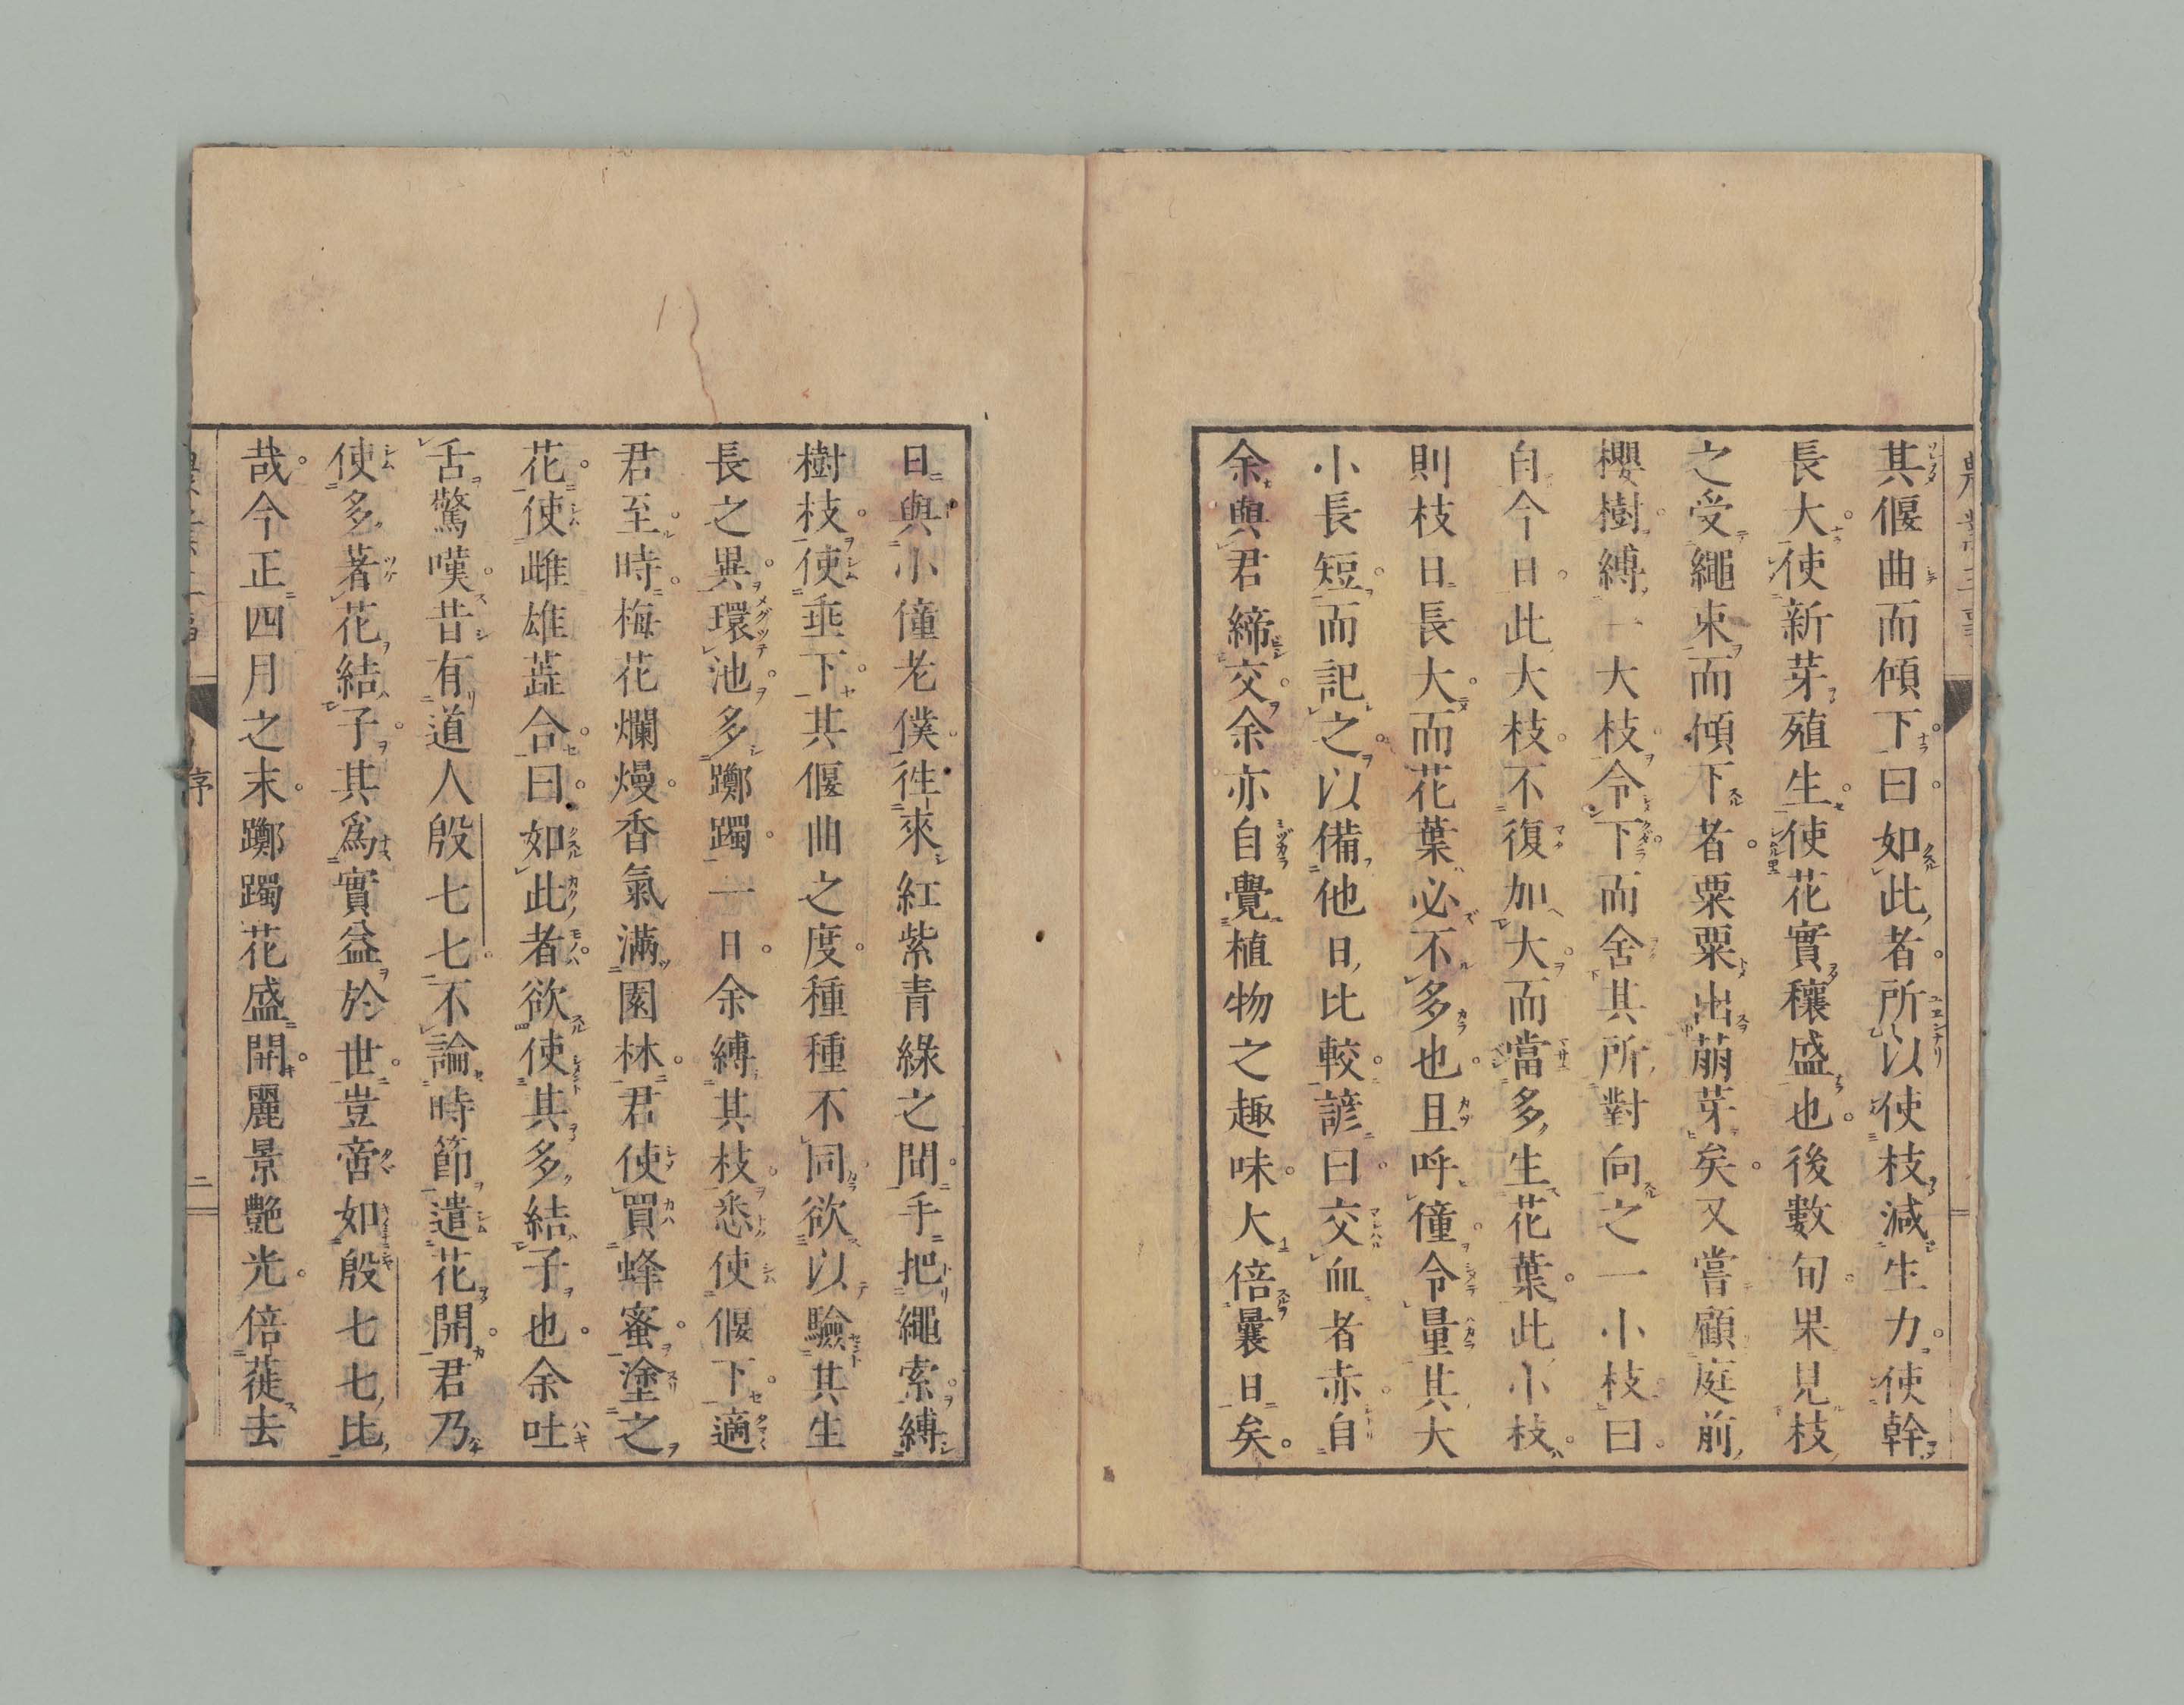 其偃曲而傾下。曰。如此者。所以使枝減生力。使幹
長大。使新芽殖生。使花實穰盛也。後數旬。果見枝
之受繩束而傾下者。粟粟出萠芽矣。又嘗顧庭前
櫻樹。縛一大枝。令下而舍其所對向之一小枝。曰。
自今日。此大枝。不復加大。而當多生花葉。此小枝。
則枝日長大。而花葉必不多也。且呼僮。令量其大
小長短。而記之。以備他日比較。諺曰。交血者赤。自
余與君締交。余亦自覺植物之趣味。大倍曩日矣。
日與小僮老僕。徃來紅紫青綠之間。手把繩索。縛
樹枝。使垂下。其偃曲之度。種種不同。欲以驗其生
長之異。環池。多躑躅。一日。余縛其枝。悉使偃下。適
君至。時。梅花爛熳。香氣滿園林。君使買蜂蜜。塗之
花。使雌雄蕋合。曰。如此者。欲使其多結子也。余吐
舌驚嘆。昔有道人殷七七。不論時節。遣花開。君乃
使多著花結子。其爲實益於世。豈啻如殷七七比
哉。今正四月之末。躑躅花盛開。麗景艷光。倍蓰去
序
二